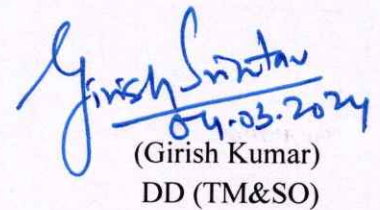 Girish Srivastav
04.03.2024
(Girish Kumar)
DD (TM&SO)